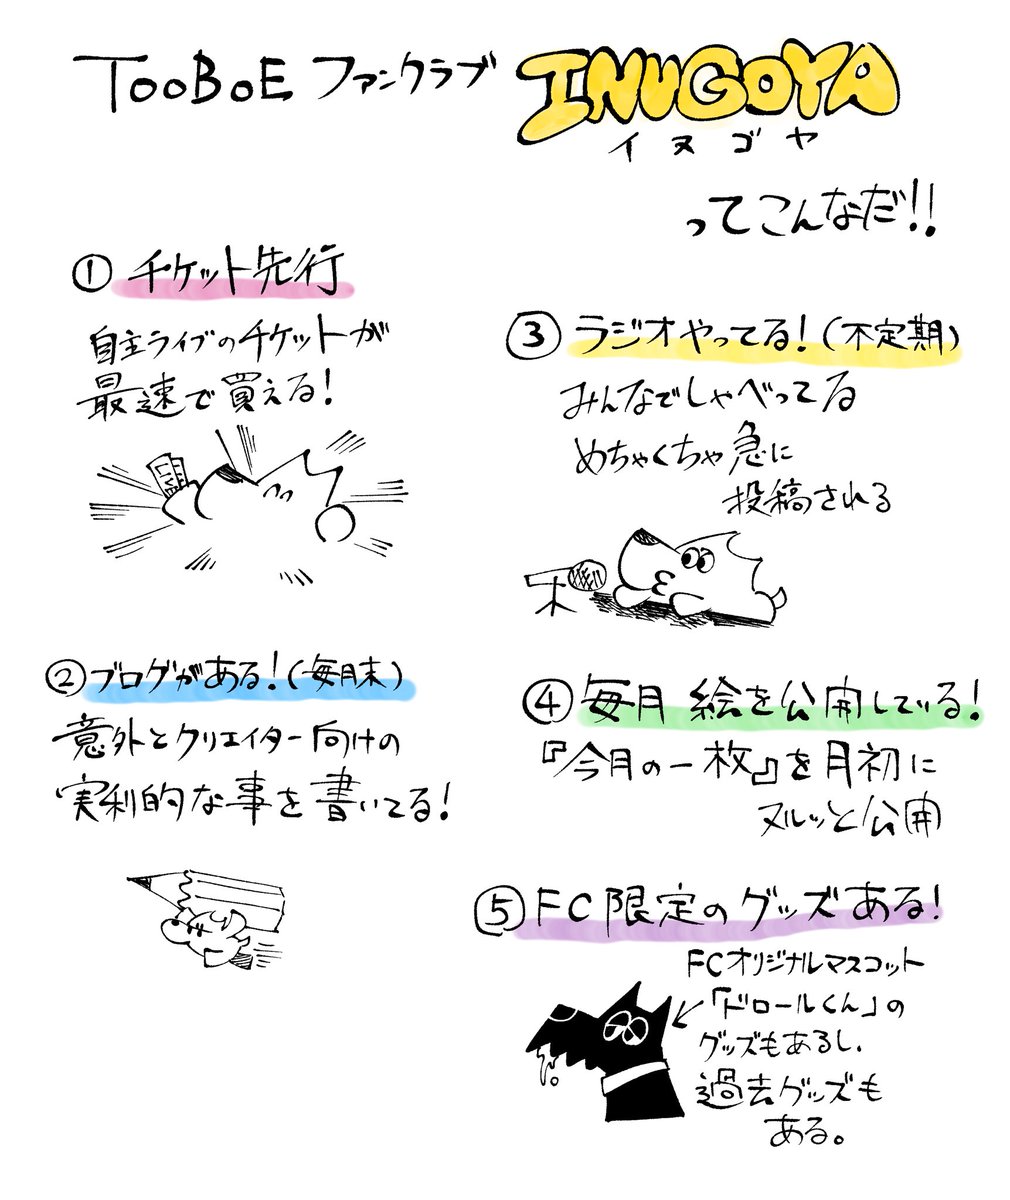 TooBoE ファンクラブ INUGOYA
イヌゴヤ
ってこんなだ!!
① チケット先行
自主ライブのチケットが
最速で買える!
② ブログがある!(毎月末)
意外とクリエイター向けの
実利的な事を書いてる!
③ ラジオやってる!(不定期)
みんなでしゃべってる
めちゃくちゃ急に
投稿される
④ 毎月 絵を公開している!
『今月の一枚』を月初に
ヌルッと公開
⑤ FC限定のグッズある!
FCオリジナルマスコット
「ドロールくん」の
グッズもあるし、
過去グッズも
ある。